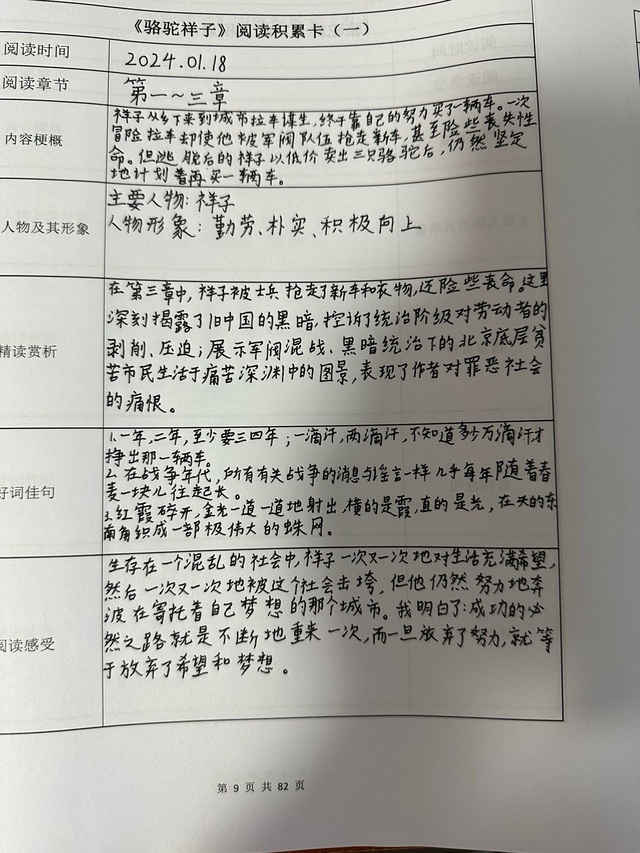 《骆驼祥子》阅读积累卡（一）
阅读时间
2024.01.18
阅读章节
第一~三章
内容梗概
祥子从乡下来到城市拉车谋生，终于靠自己的努力买了一辆车。一次
冒险拉车却使他被军阀队伍抢走新车，甚至险些丧失性
命。但逃脱后的祥子以低价卖出三只骆驼后，仍然坚定
地计划着再买一辆车。
人物及其形象
主要人物：祥子
人物形象：勤劳、朴实、积极向上
精读赏析
在第三章中，祥子被士兵抢走了新车和衣物，还险些丧命。这里
深刻揭露了旧中国的黑暗，控诉了统治阶级对劳动者的
剥削、压迫；展示军阀混战、黑暗统治下的北京底层贫
苦市民生活于痛苦深渊中的图景，表现了作者对罪恶社会
的痛恨。
好词佳句
1.一年，二年，至少要三四年；一滴汗，两滴汗，不知道多少万滴汗才
挣出那一辆车。
2.在战争年代，所有有关战争的消息与谣言一样几乎每年随着春
麦一块儿往起长。
3.红霞碎开，金光一道一道地射出，横的是霞，直的是光，在天的东
南角织成一部极伟大的蛛网。
阅读感受
生存在一个混乱的社会中，祥子一次又一次地对生活充满希望，
然后一次又一次地被这个社会击垮，但他仍然努力地奔
波在寄托着自己梦想的那个城市。我明白了：成功的必
然之路就是不断地重来一次，而一旦放弃了努力，就等
于放弃了希望和梦想。
第 9 页 共 82 页